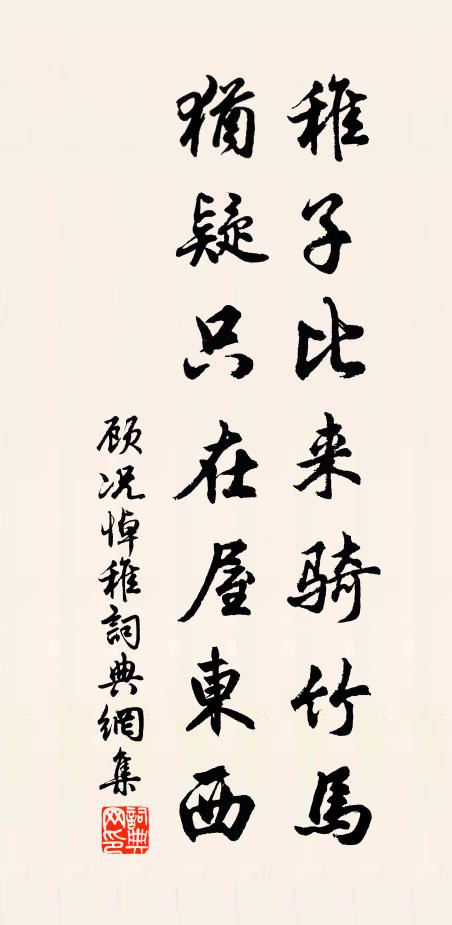 稚子比来骑竹馬
猶疑只在屋東西
顾况悼稚詞典網集
詞典网印